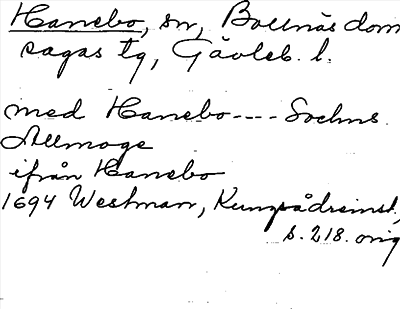 Hanebo, sn, Bollnäs dom
sagas tg, Gävleb. l.
med Hanebo---- Sochns.
Allmoge
ifrån Hanebo
1694 Westman, Kungsådreinst,
s. 218. orig